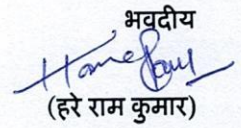 भवदीय
(हरे राम कुमार)